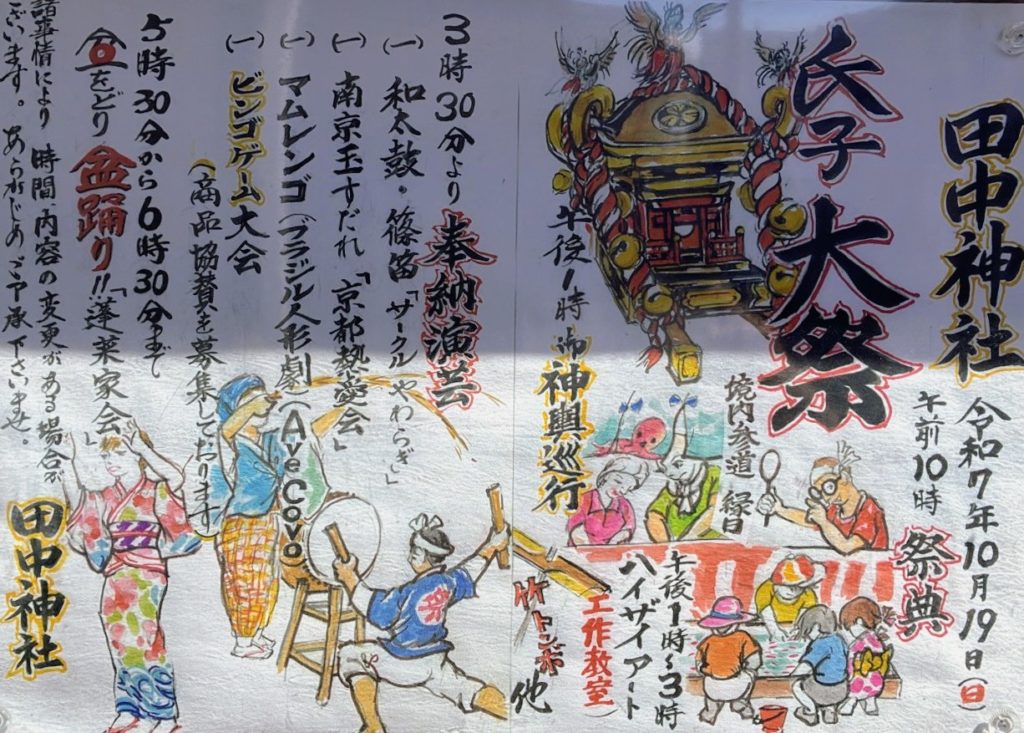 田中神社
令和7年10月19日(日)
午前10時 祭典
氏子大祭
境内参道 縁日
午後1時 御神輿巡行
午後1時〜3時
ハイザイアート
工作教室
竹トンボ他
3時30分より 奉納演芸
(一) 和太鼓・篠笛「サークルやわらぎ」
(一) 南京玉すだれ「京都熱愛会」
(一) マムレンゴ(ブラジル人形劇)(Ave Covo)
(一) ビンゴゲーム大会
(商品協賛を募集しております
5時30分から6時30分まで
をどり 盆踊り!!「蓬莱家会」
諸事情により 時間内容の変更がある場合が
ございます。あらかじめご了承下さいませ。
田中神社